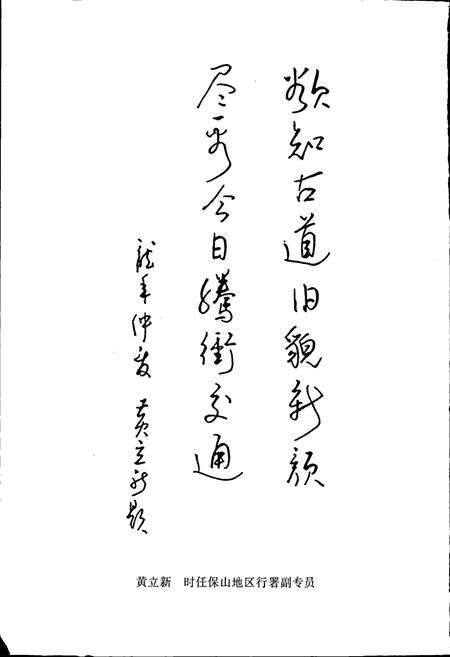 欲知古道旧貌新颜
尽看今日腾冲交通
龙年仲夏 黄立新题
黄立新 时任保山地区行署副专员